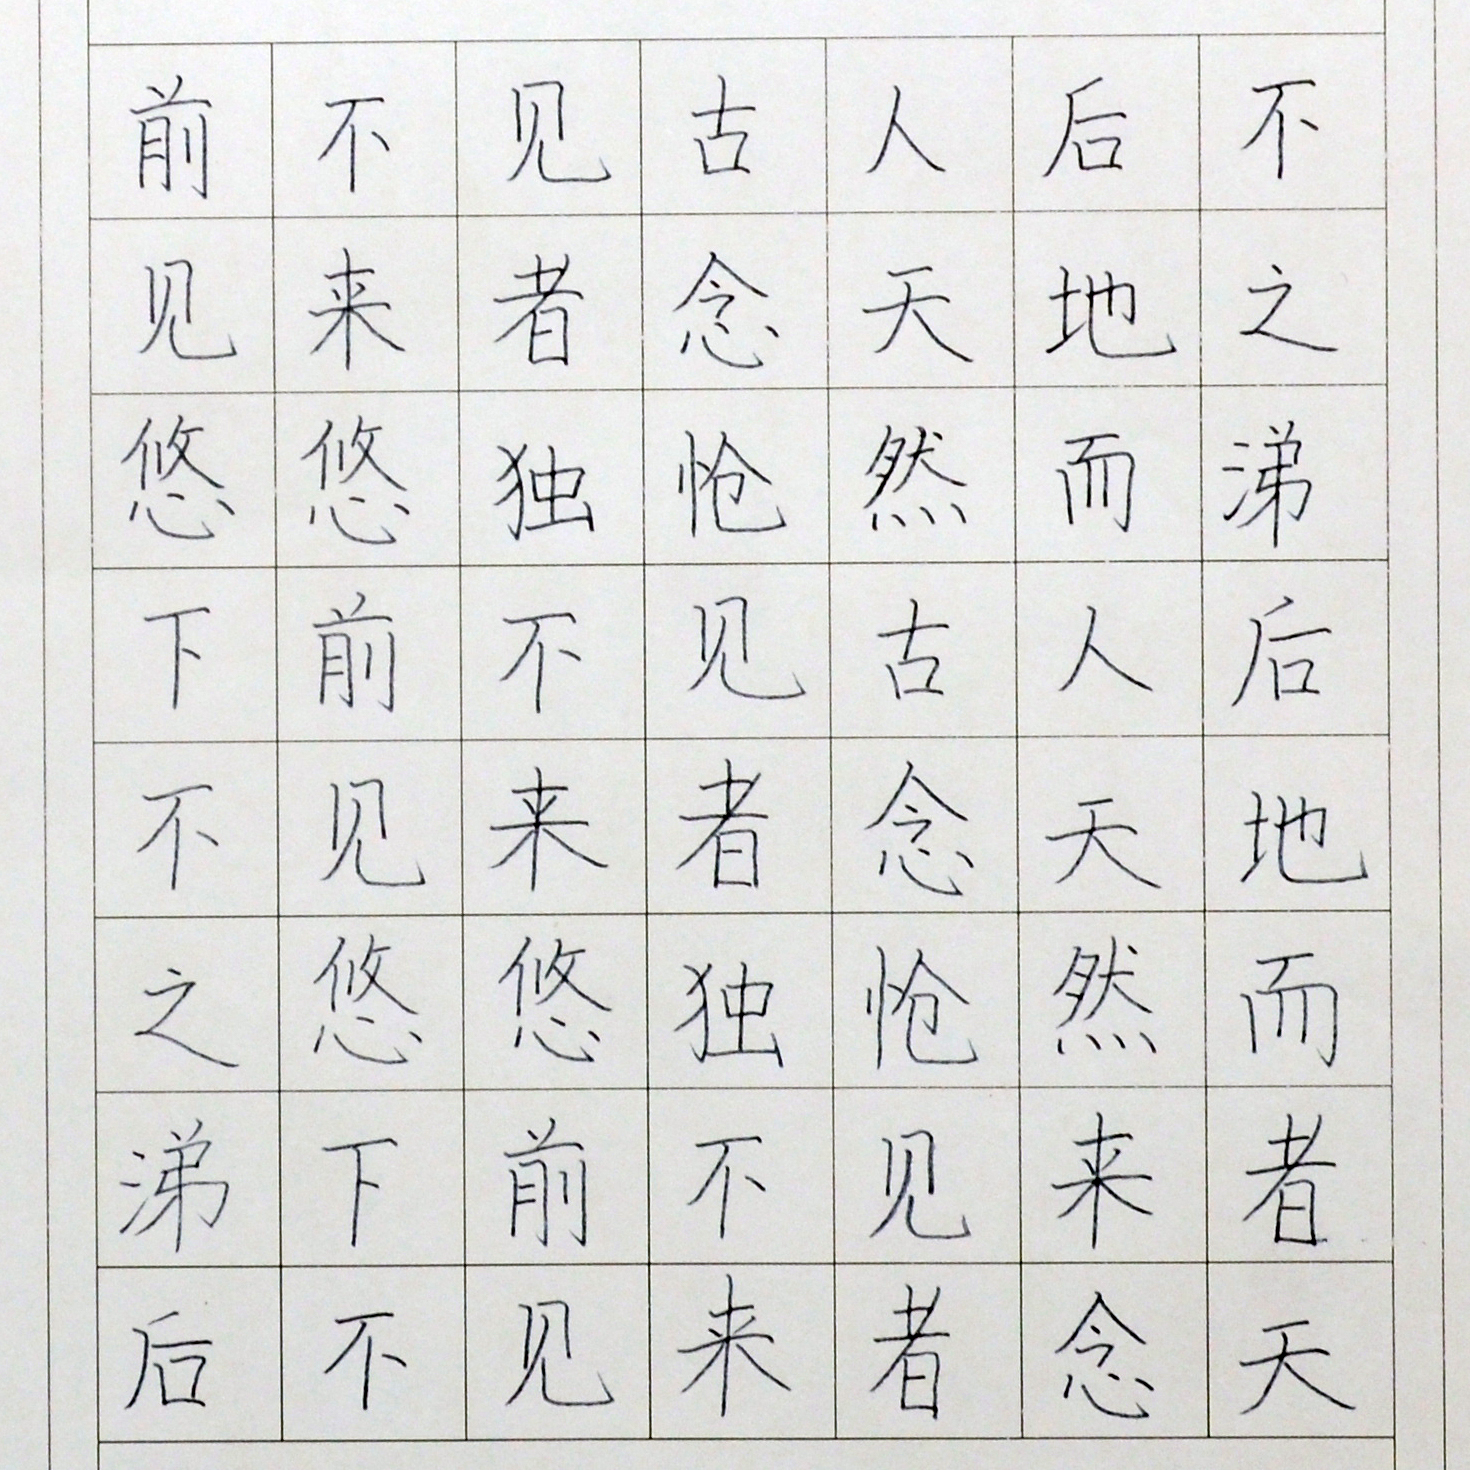 前不见古人后不
见来者念天地之
悠悠独怆然而涕
下前不见古人后
不见来者念天地
之悠悠独怆然而
涕下前不见来者
后不见来者念天